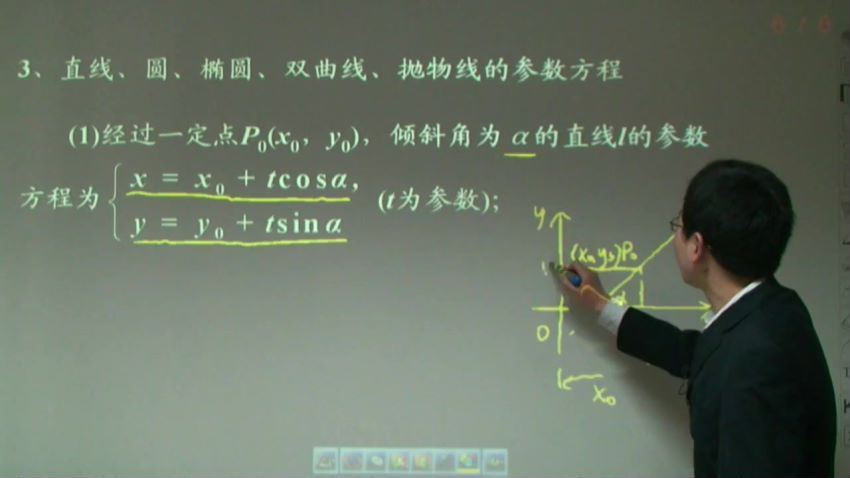 6 / 6
3、直线、圆、椭圆、双曲线、抛物线的参数方程
(1)经过一定点P₀(x₀, y₀), 倾斜角为 α的直线l的参数
方程为 { x = x₀ + tcosα,
y = y₀ + tsinα (t为参数);
y
(x₀,y₀)P₀
α
0
x₀